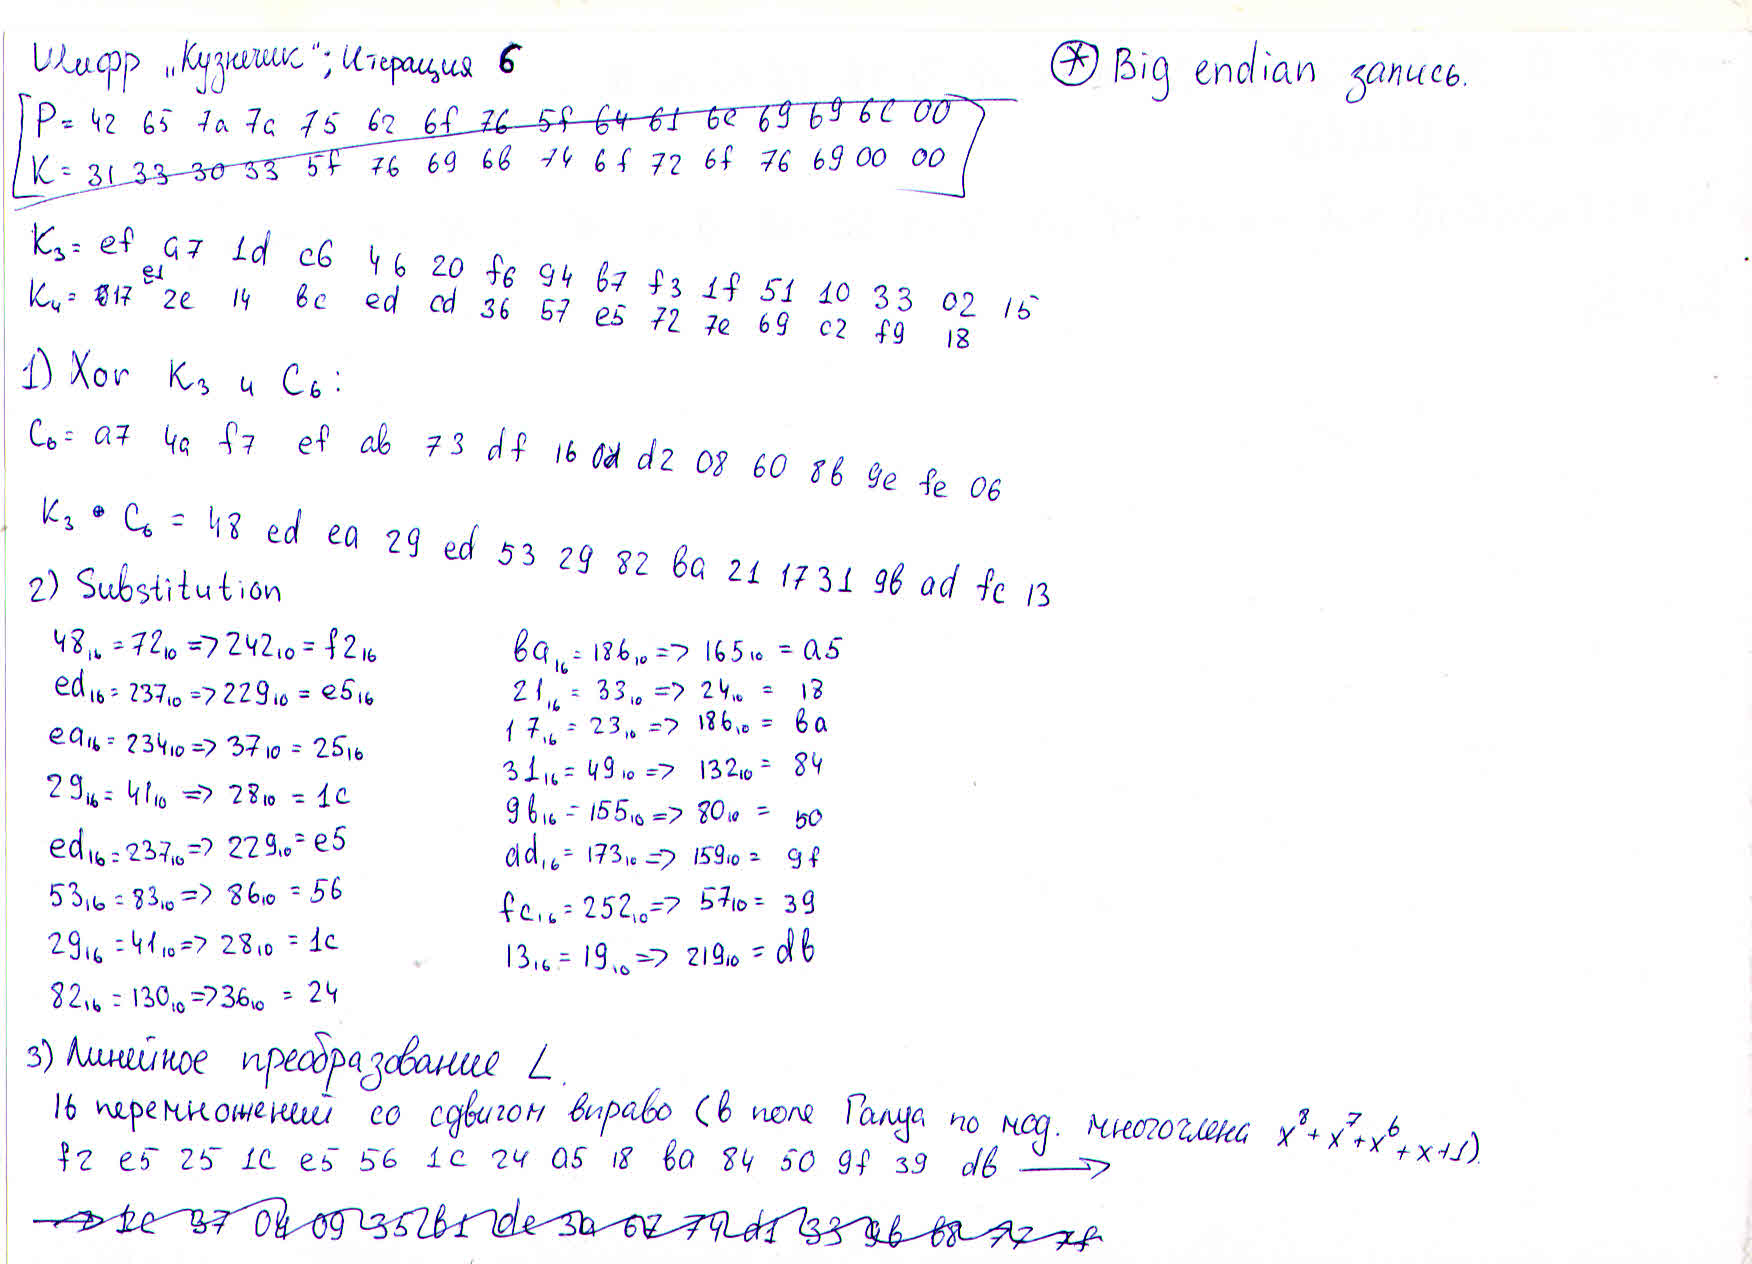 Шифр „Кузнечик“; Итерация 6
* Big endian запись.
P = 42 65 7a 7a 75 62 6f 76 5f 64 61 6e 69 69 6c 00
K = 31 33 30 33 5f 76 69 6b 74 6f 72 6f 76 69 00 00
K3 = ef a7 1d c6 46 20 f6 94 b7 f3 1f 51 10 33 02 15
K4 = 17 e1 2e 14 bc ed cd 36 57 e5 72 7e 69 c2 f9 18
1) Xor K3 и C6:
C6 = a7 4a f7 ef ab 73 df 16 0d d2 08 60 8b 9e fe 06
K3 ⊕ C6 = 48 ed ea 29 ed 53 29 82 ba 21 17 31 9b ad fc 13
2) Substitution
48₁₆ = 72₁₀ => 242₁₀ = f2₁₆
ed₁₆ = 237₁₀ => 229₁₀ = e5₁₆
ea₁₆ = 234₁₀ => 37₁₀ = 25₁₆
29₁₆ = 41₁₀ => 28₁₀ = 1c
ed₁₆ = 237₁₀ => 229₁₀ = e5
53₁₆ = 83₁₀ => 86₁₀ = 56
29₁₆ = 41₁₀ => 28₁₀ = 1c
82₁₆ = 130₁₀ => 36₁₀ = 24
ba₁₆ = 186₁₀ => 165₁₀ = a5
21₁₆ = 33₁₀ => 24₁₀ = 18
17₁₆ = 23₁₀ => 186₁₀ = ba
31₁₆ = 49₁₀ => 132₁₀ = 84
9b₁₆ = 155₁₀ => 80₁₀ = 50
ad₁₆ = 173₁₀ => 159₁₀ = 9f
fc₁₆ = 252₁₀ => 57₁₀ = 39
13₁₆ = 19₁₀ => 219₁₀ = db
3) Линейное преобразование L.
16 перемножений со сдвигом вправо (в поле Галуа по мод. многочлена x⁸+x⁷+x⁶+x+1).
f2 e5 25 1c e5 56 1c 24 a5 18 ba 84 50 9f 39 db →